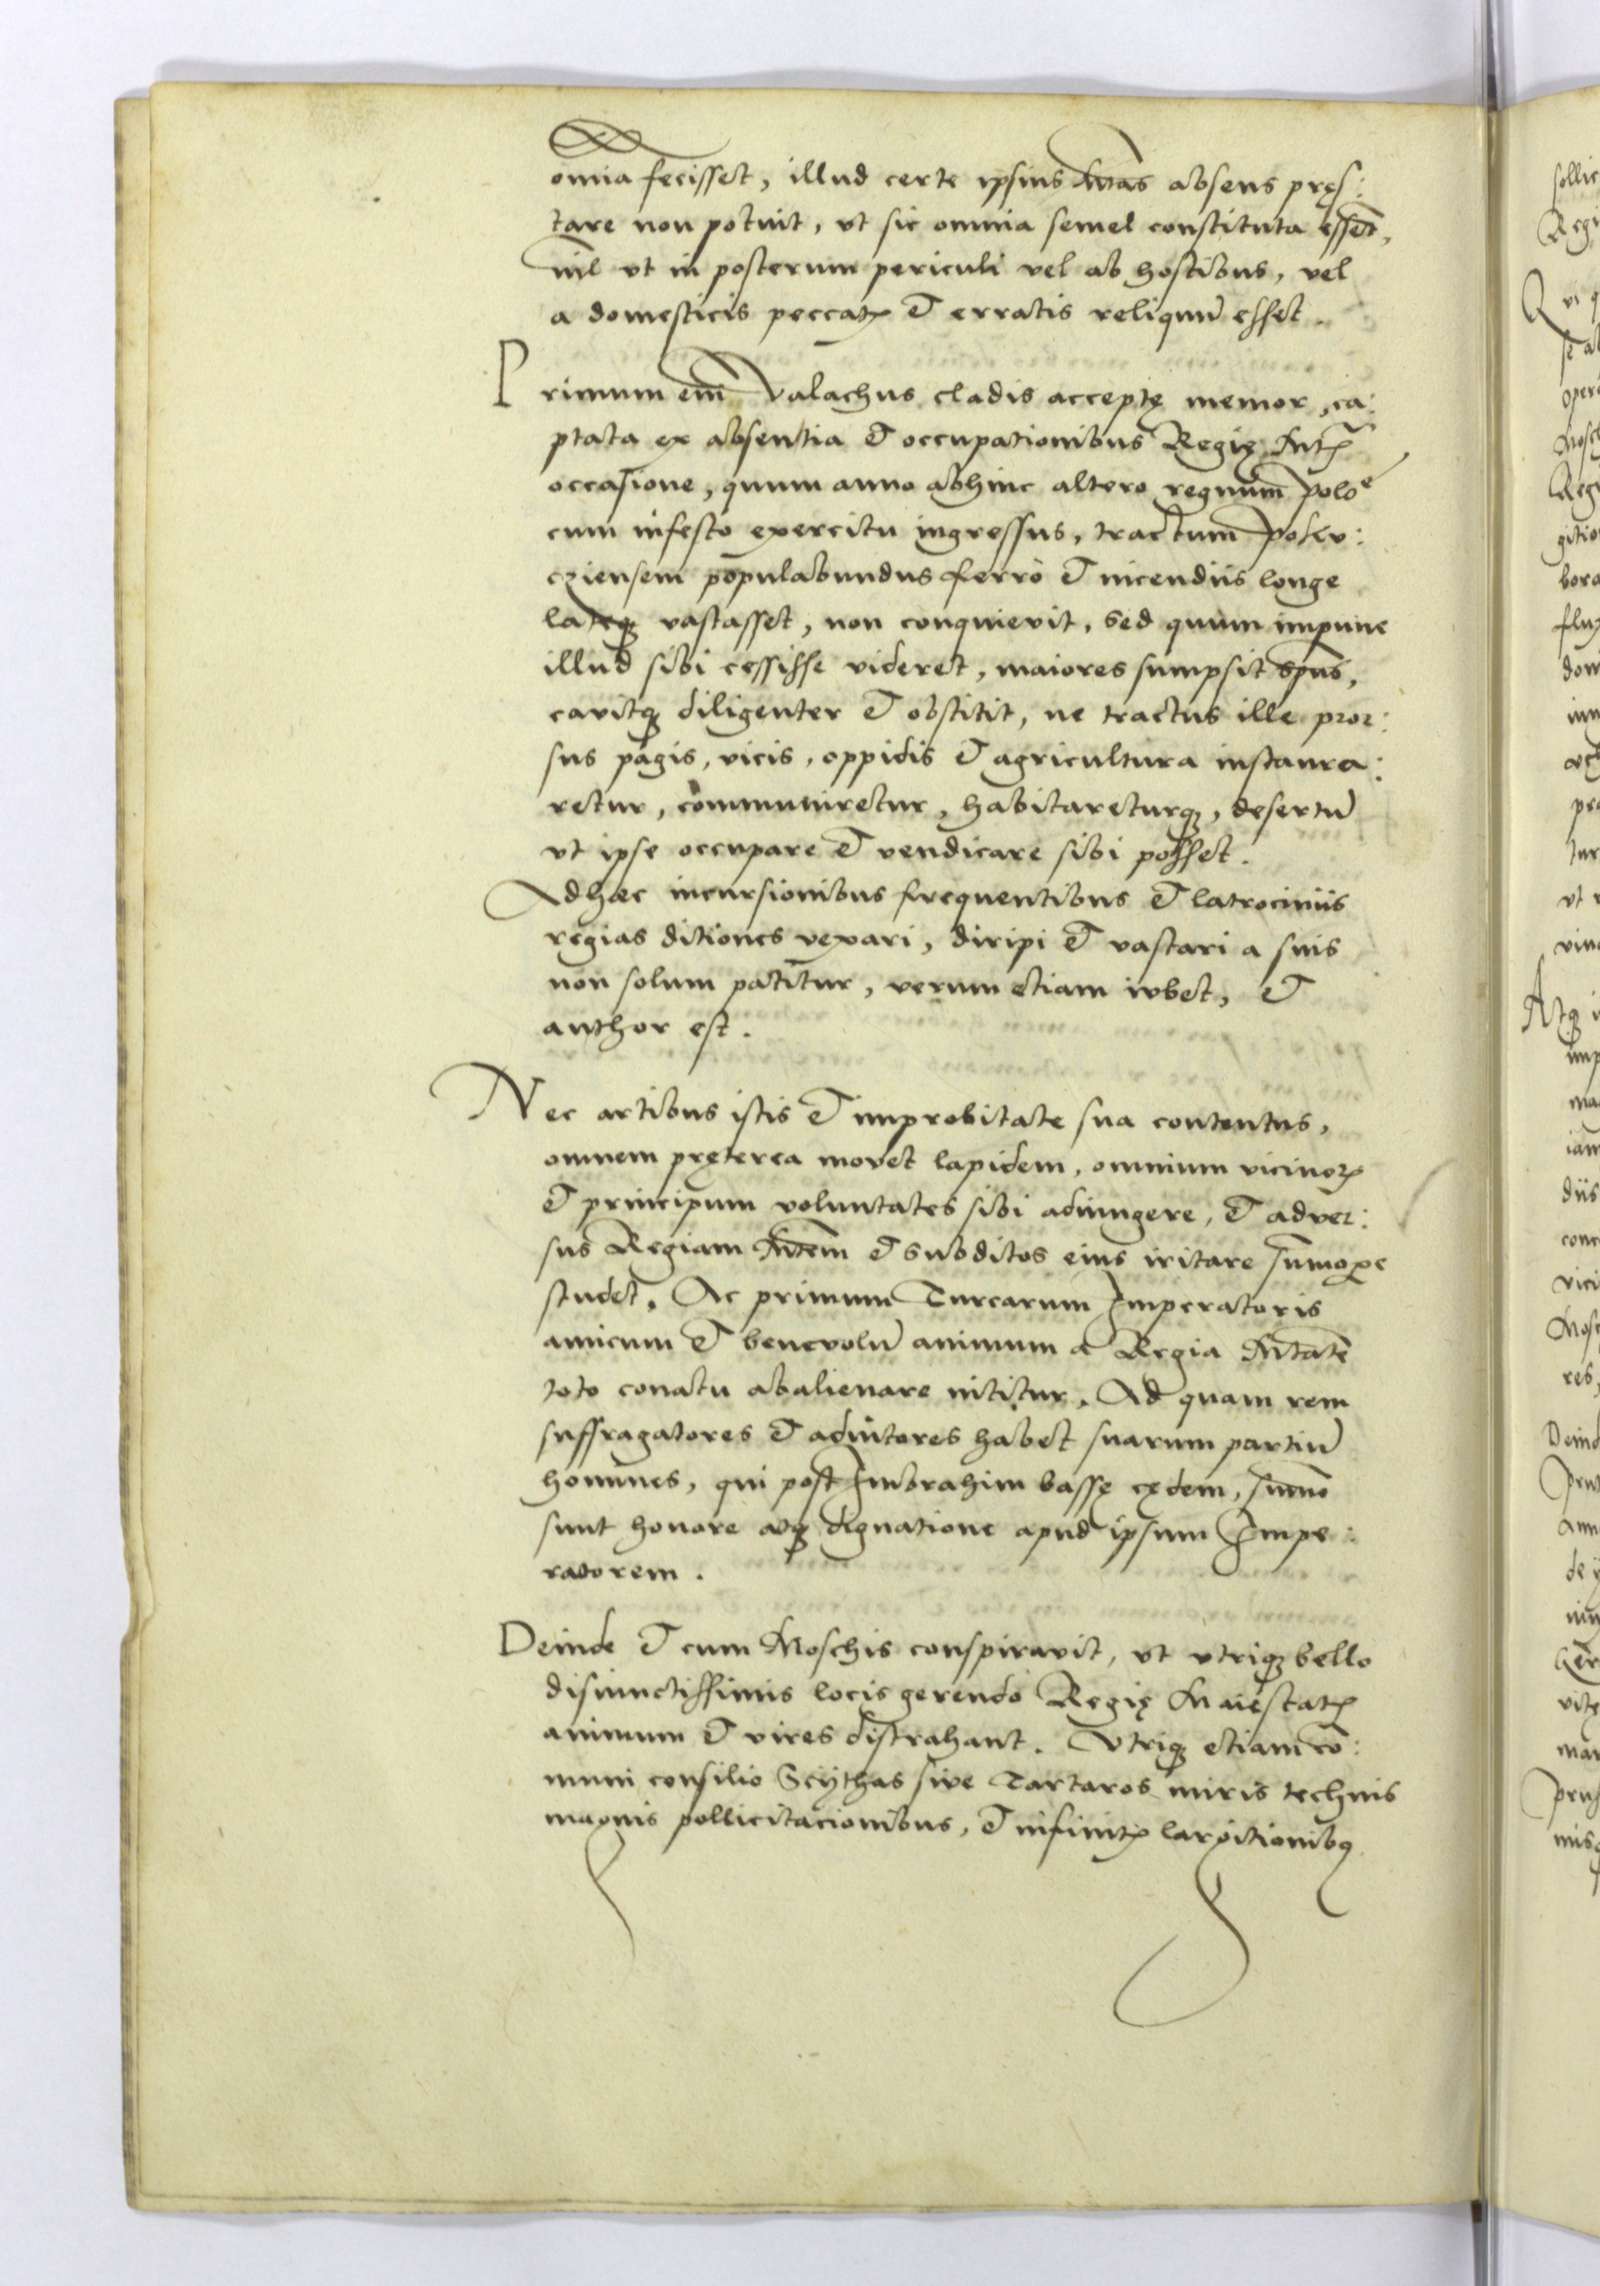 om̃ia fecisset, illud certe ipsius M̃tas absens pręs:
tare non potuit, vt sic omnia semel constituta essẽt,
nil vt in posterum periculi vel ab hostibus, vel
a domesticis peccatꝭ & erratis reliquũ esset.
Primum em̃ Valachus cladis acceptę memor, ca:
ptata ex absentia & occupationibus Regię Mtꝭ
occasione, quum anno abhinc altero regnum Poloe
cum infesto exercitu ingressus, tractum Pokv:
cziensem populabundus ferro & incendiis longe
lateqꝫ vastasset, non conquievit, sed quum impune
illud sibi cessisse videret, maiores sumpsit spũs,
cavitqꝫ diligenter & obstitit, ne tractus ille pror:
sus pagis, vicis, oppidis & agricultura instaura:
retur, communiretur, habitareturqꝫ, desertũ
vt ipse occupare & vendicare sibi posset.
Ad hæc incursionibus frequentibus & latrociniis
regias ditiones vexari, diripi & vastari a suis
non solum patitur, verum etiam ivbet, &
author est.
Nec artibus istis & improbitate sua contentus,
omnem pręterea movet lapidem, omnium vicinoꝝ
& principum voluntates sibi adiungere, & adver:
sus Regiam M̃tem & subditos eius iritare sum̃oꝑe
studet. Ac primum Turcarum Imperatoris
amicum & benevolũ animum a Regia M̃tate
toto conatu abalienare nititur. Ad quam rem
suffragatores & adiutores habet suarum partiũ
homines, qui post Imbrahim bassę cędem, sum̃o
sunt honore atqꝫ dignatione apud ipsum Impe:
ratorem.
Deinde & cum Moschis conspiravit, vt vtriqꝫ bello
disiunctissimis locis gerendo Regię Maiestatꝭ
animum & vires distrahant. Vtriqꝫ etiam cõ:
muni consilio Scythas sive Tartaros miris technis
magnis pollicitacionibus, & infinitꝭ largitionibꝫ